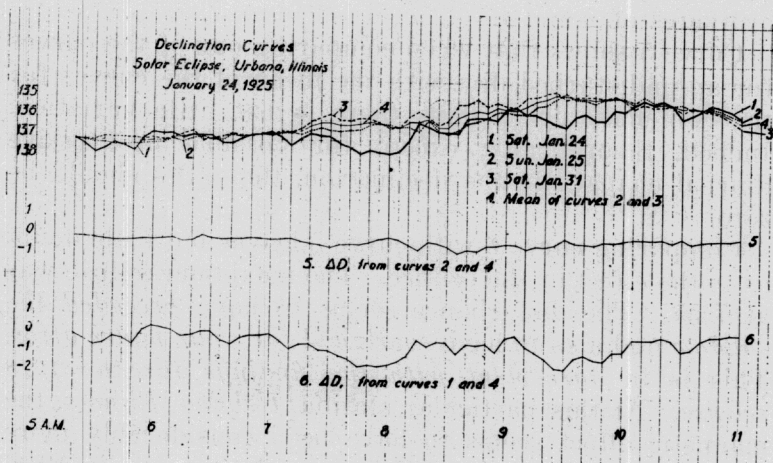 Declination Curves
Solar Eclipse, Urbana, Illinois
January 24, 1925
135
136
137
138
3 4
1 2
1
2
4
3
1. Sat. Jan. 24
2. Sun. Jan. 25
3. Sat. Jan. 31
4. Mean of curves 2 and 3
1
0
-1
5
5. ΔD, from curves 2 and 4
1
0
-1
-2
6
6. ΔD, from curves 1 and 4
5 A.M. 6 7 8 9 10 11